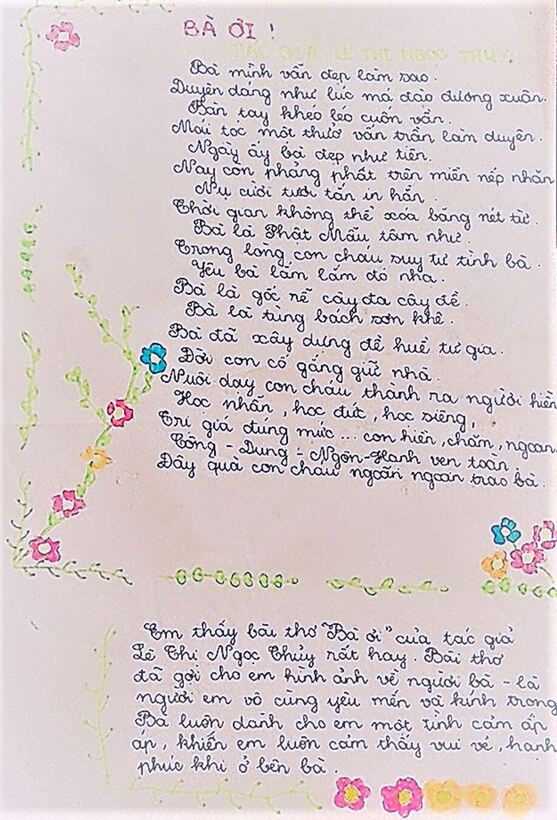 BÀ ƠI !
TÁC GIẢ LÊ THỊ NGỌC THỦY
Bà mình vẫn đẹp làm sao.
Duyên dáng như lúc má đào đương xuân.
Bàn tay khéo léo cuốn vần.
Mái tóc một thuở vấn trần làm duyên.
Ngày ấy bà đẹp như tiên.
Nay còn phảng phất trên miền nếp nhăn
Nụ cười tươi tắn in hằn.
Thời gian không thể xóa bằng nét từ.
Bà là Phật Mẫu tâm như.
Trong lòng con cháu suy tư tình bà.
Yêu bà lắm lắm đó nha.
Bà là gốc rễ cây đa cây đề.
Bà là tùng bách sơn khê.
Bà đã xây dựng đề huề tư gia.
Đời con cố gắng giữ nhà.
Nuôi dạy con cháu thành ra người hiền
Học nhẫn, học đức, học siêng,
Trí giả đúng mức ... con hiền, chăm, ngoan.
Công - Dung - Ngôn - Hạnh vẹn toàn.
Đây quà con cháu ngoãn ngoan trao bà.
Em thấy bài thơ "Bà ơi" của tác giả
Lê Thị Ngọc Thủy rất hay. Bài thơ
đã gợi cho em hình ảnh về người bà - là
người em vô cùng yêu mến và kính trọng
Bà luôn dành cho em một tình cảm ấp
áp, khiến em luôn cảm thấy vui vẻ, hạnh
phúc khi ở bên bà.